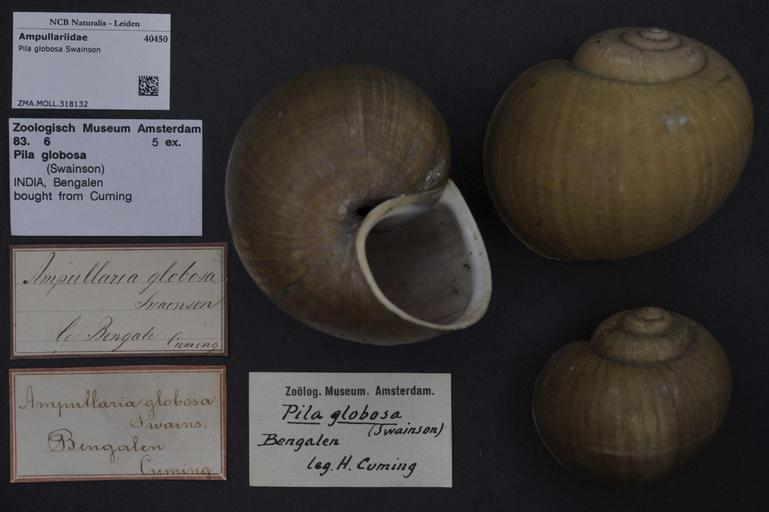 NCB Naturalis - Leiden
Ampullariidae 40450
Pila globosa Swainson
ZMA.MOLL.318132
Zoologisch Museum Amsterdam
83. 6 5 ex.
Pila globosa
(Swainson)
INDIA, Bengalen
bought from Cuming
Ampullaria globosa
Swainson
le Bengale Cuming
Ampullaria globosa
Swains:
Bengalen
Cuming
Zoölog. Museum. Amsterdam.
Pila globosa
(Swainson)
Bengalen
leg. H. Cuming